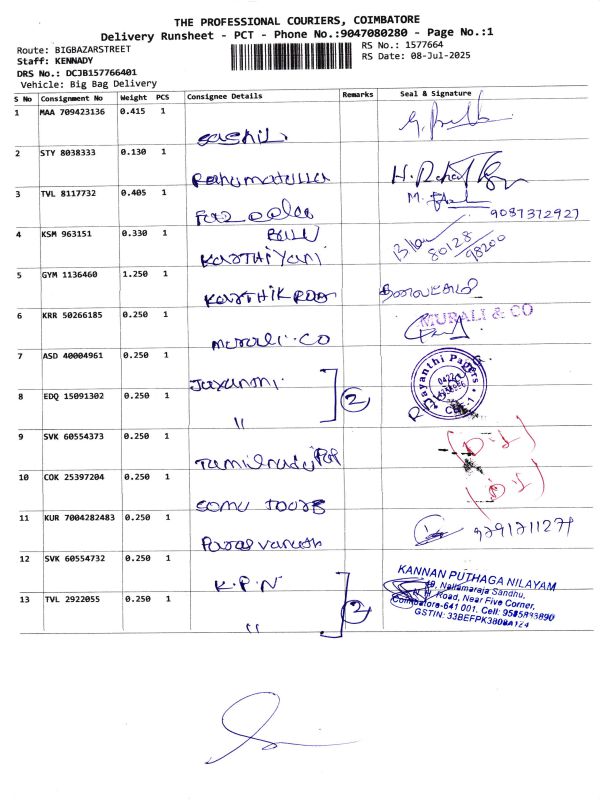 THE PROFESSIONAL COURIERS, COIMBATORE
Delivery Runsheet - PCT - Phone No.:9047080280 - Page No.:1
Route: BIGBAZARSTREET
RS No.: 1577664
Staff: KENNADY
RS Date: 08-Jul-2025
DRS No.: DCJB157766401
Vehicle: Big Bag Delivery
S No Consignment No Weight PCS Consignee Details Remarks Seal & Signature
1 MAA 709423136 0.415 1
2 STY 8038333 0.130 1 Rahumatulla
3 TVL 8117732 0.405 1
9087372927
4 KSM 963151 0.330 1 KarTHiYani
80128
98200
5 GYM 1136460 1.250 1
6 KRR 50266185 0.250 1 murali.co
MURALI & CO
7 ASD 40004961 0.250 1 Jayanthi
Jayanthi Papers
CBE-1
8 EDQ 15091302 0.250 1 " 2
9 SVK 60554373 0.250 1 Tamilnadu
10 COK 25397204 0.250 1 somu Tours
11 KUR 7004282483 0.250 1
12 SVK 60554732 0.250 1 K.P.N
KANNAN PUTHAGA NILAYAM
19, Nallamaraja Sandhu,
N.H. Road, Near Five Corner,
Coimbatore-641 001. Cell: 9585893890
13 TVL 2922055 0.250 1 " 2